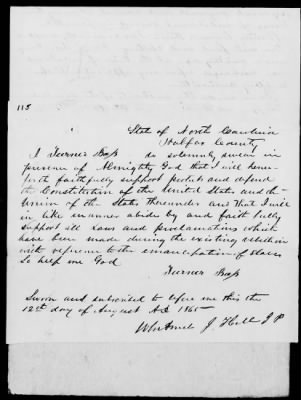 118
State of North Carolina
Halifax County
I Turner Bass do solemnly swear in
presence of Almighty God that I will hence
forth faithfully support protect and defend
the Constitution of the United States and the
Union of the States thereunder and that I will
in like manner abide by and faithfully
support all Laws and proclamations which
have been made during the existing rebellion
with reference to the emancipation of slaves
So help me God
Turner Bass
Sworn and subscribed to before me this the
12th day of August AD 1865
J. Hill J P